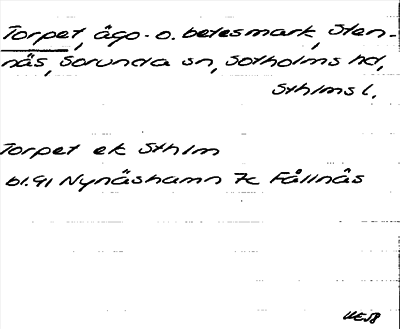 Torpet, ägo- o. betesmark, Sten-
näs, Sorunda sn, Sotholms hd,
Sthlms l.
Torpet ek Sthlm
bl. 91 Nynäshamn 7c Fållnäs